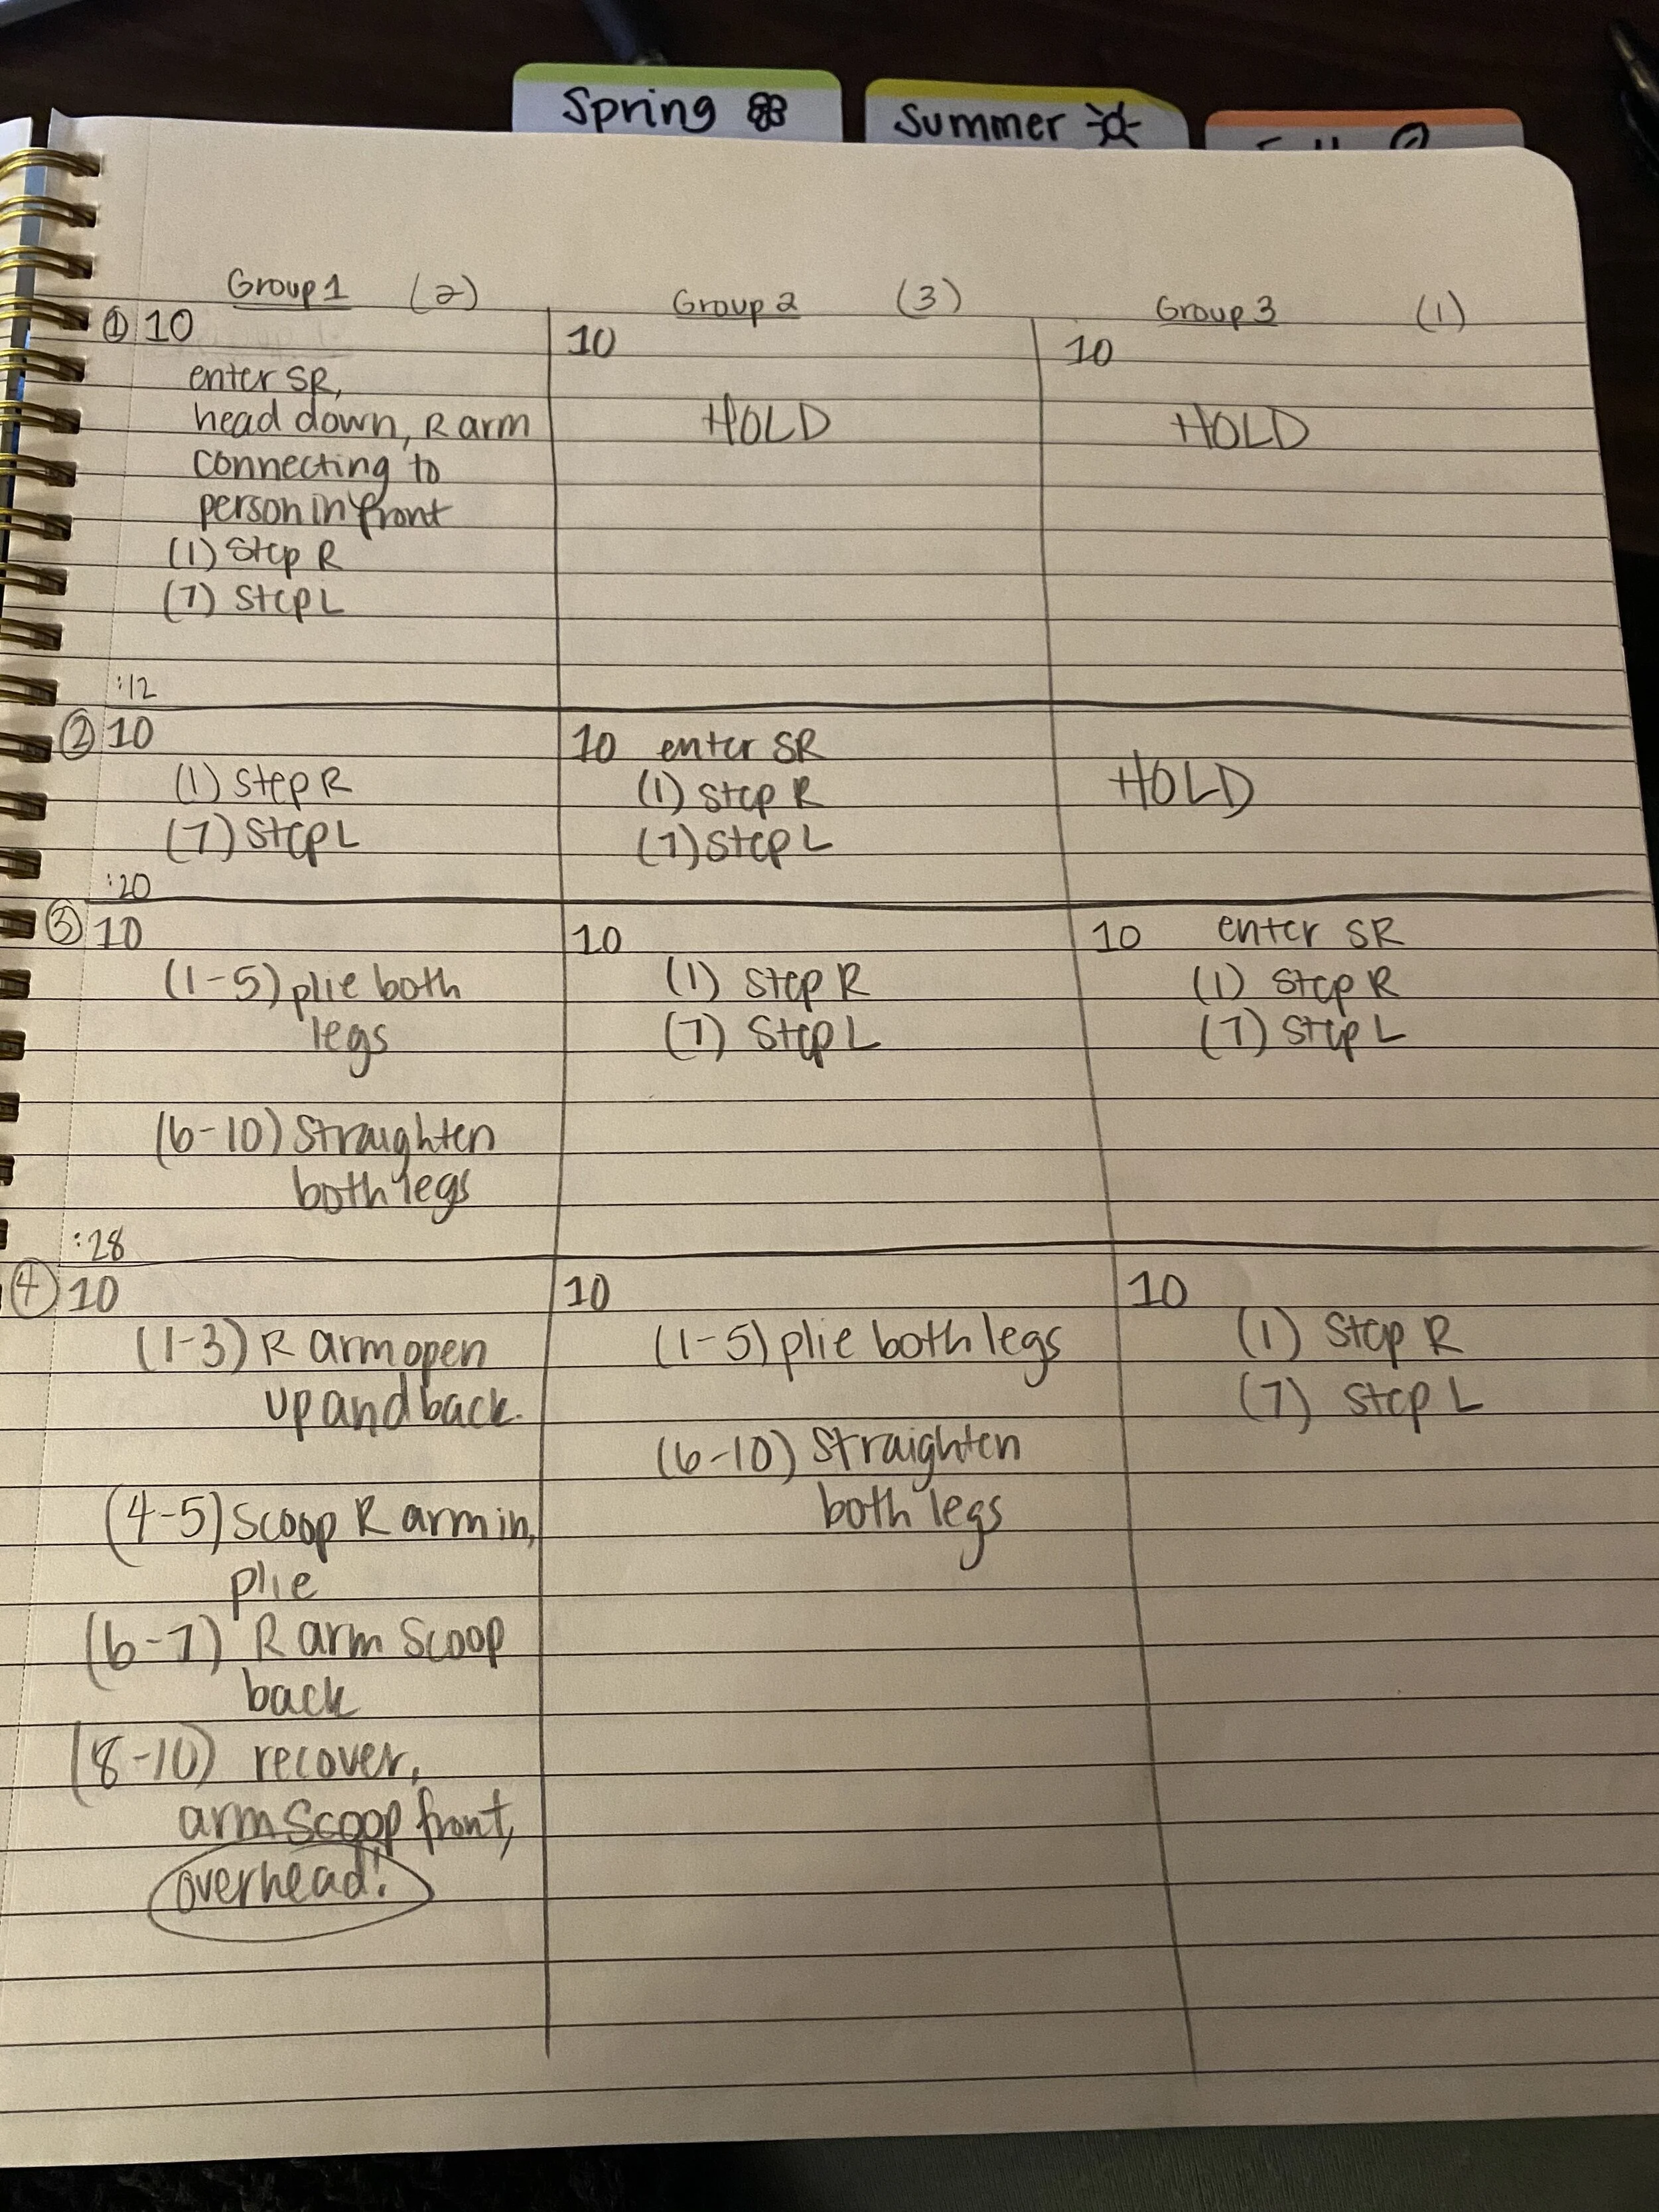 Spring
Summer
Group 1 (2)
Group 2 (3)
Group 3 (1)
① 10
enter SR,
head down, R arm
connecting to
person in front
(1) Step R
(7) Step L
10
HOLD
10
HOLD
:12
② 10
(1) Step R
(7) Step L
10 enter SR
(1) Step R
(7) Step L
HOLD
:20
③ 10
(1-5) plie both
legs
(6-10) Straighten
both legs
10
(1) Step R
(7) Step L
10 enter SR
(1) Step R
(7) Step L
:28
④ 10
(1-3) R arm open
up and back.
(4-5) Scoop R arm in,
plie
(6-7) R arm Scoop
back
(8-10) recover,
arm scoop front,
overhead!
10
(1-5) plie both legs
(6-10) Straighten
both legs
10
(1) Step R
(7) Step L